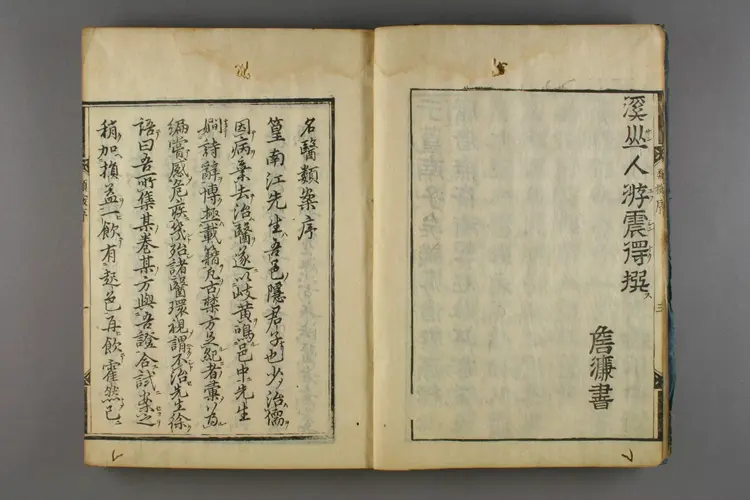 溪丄人游震得撰
詹濂書
名醫類案序
篁南江先生吾邑隱君子也少治儒
因病棄去治醫遂以岐黄鳴邑中先生
嫻詩辭博極載籍凡古禁方足紀者彙以為
編嘗感危疾幾殆諸醫環視謂不治先生徐
語曰吾所集某卷某方與吾證合試案之
稍加損益一飲有起色再飲霍然已